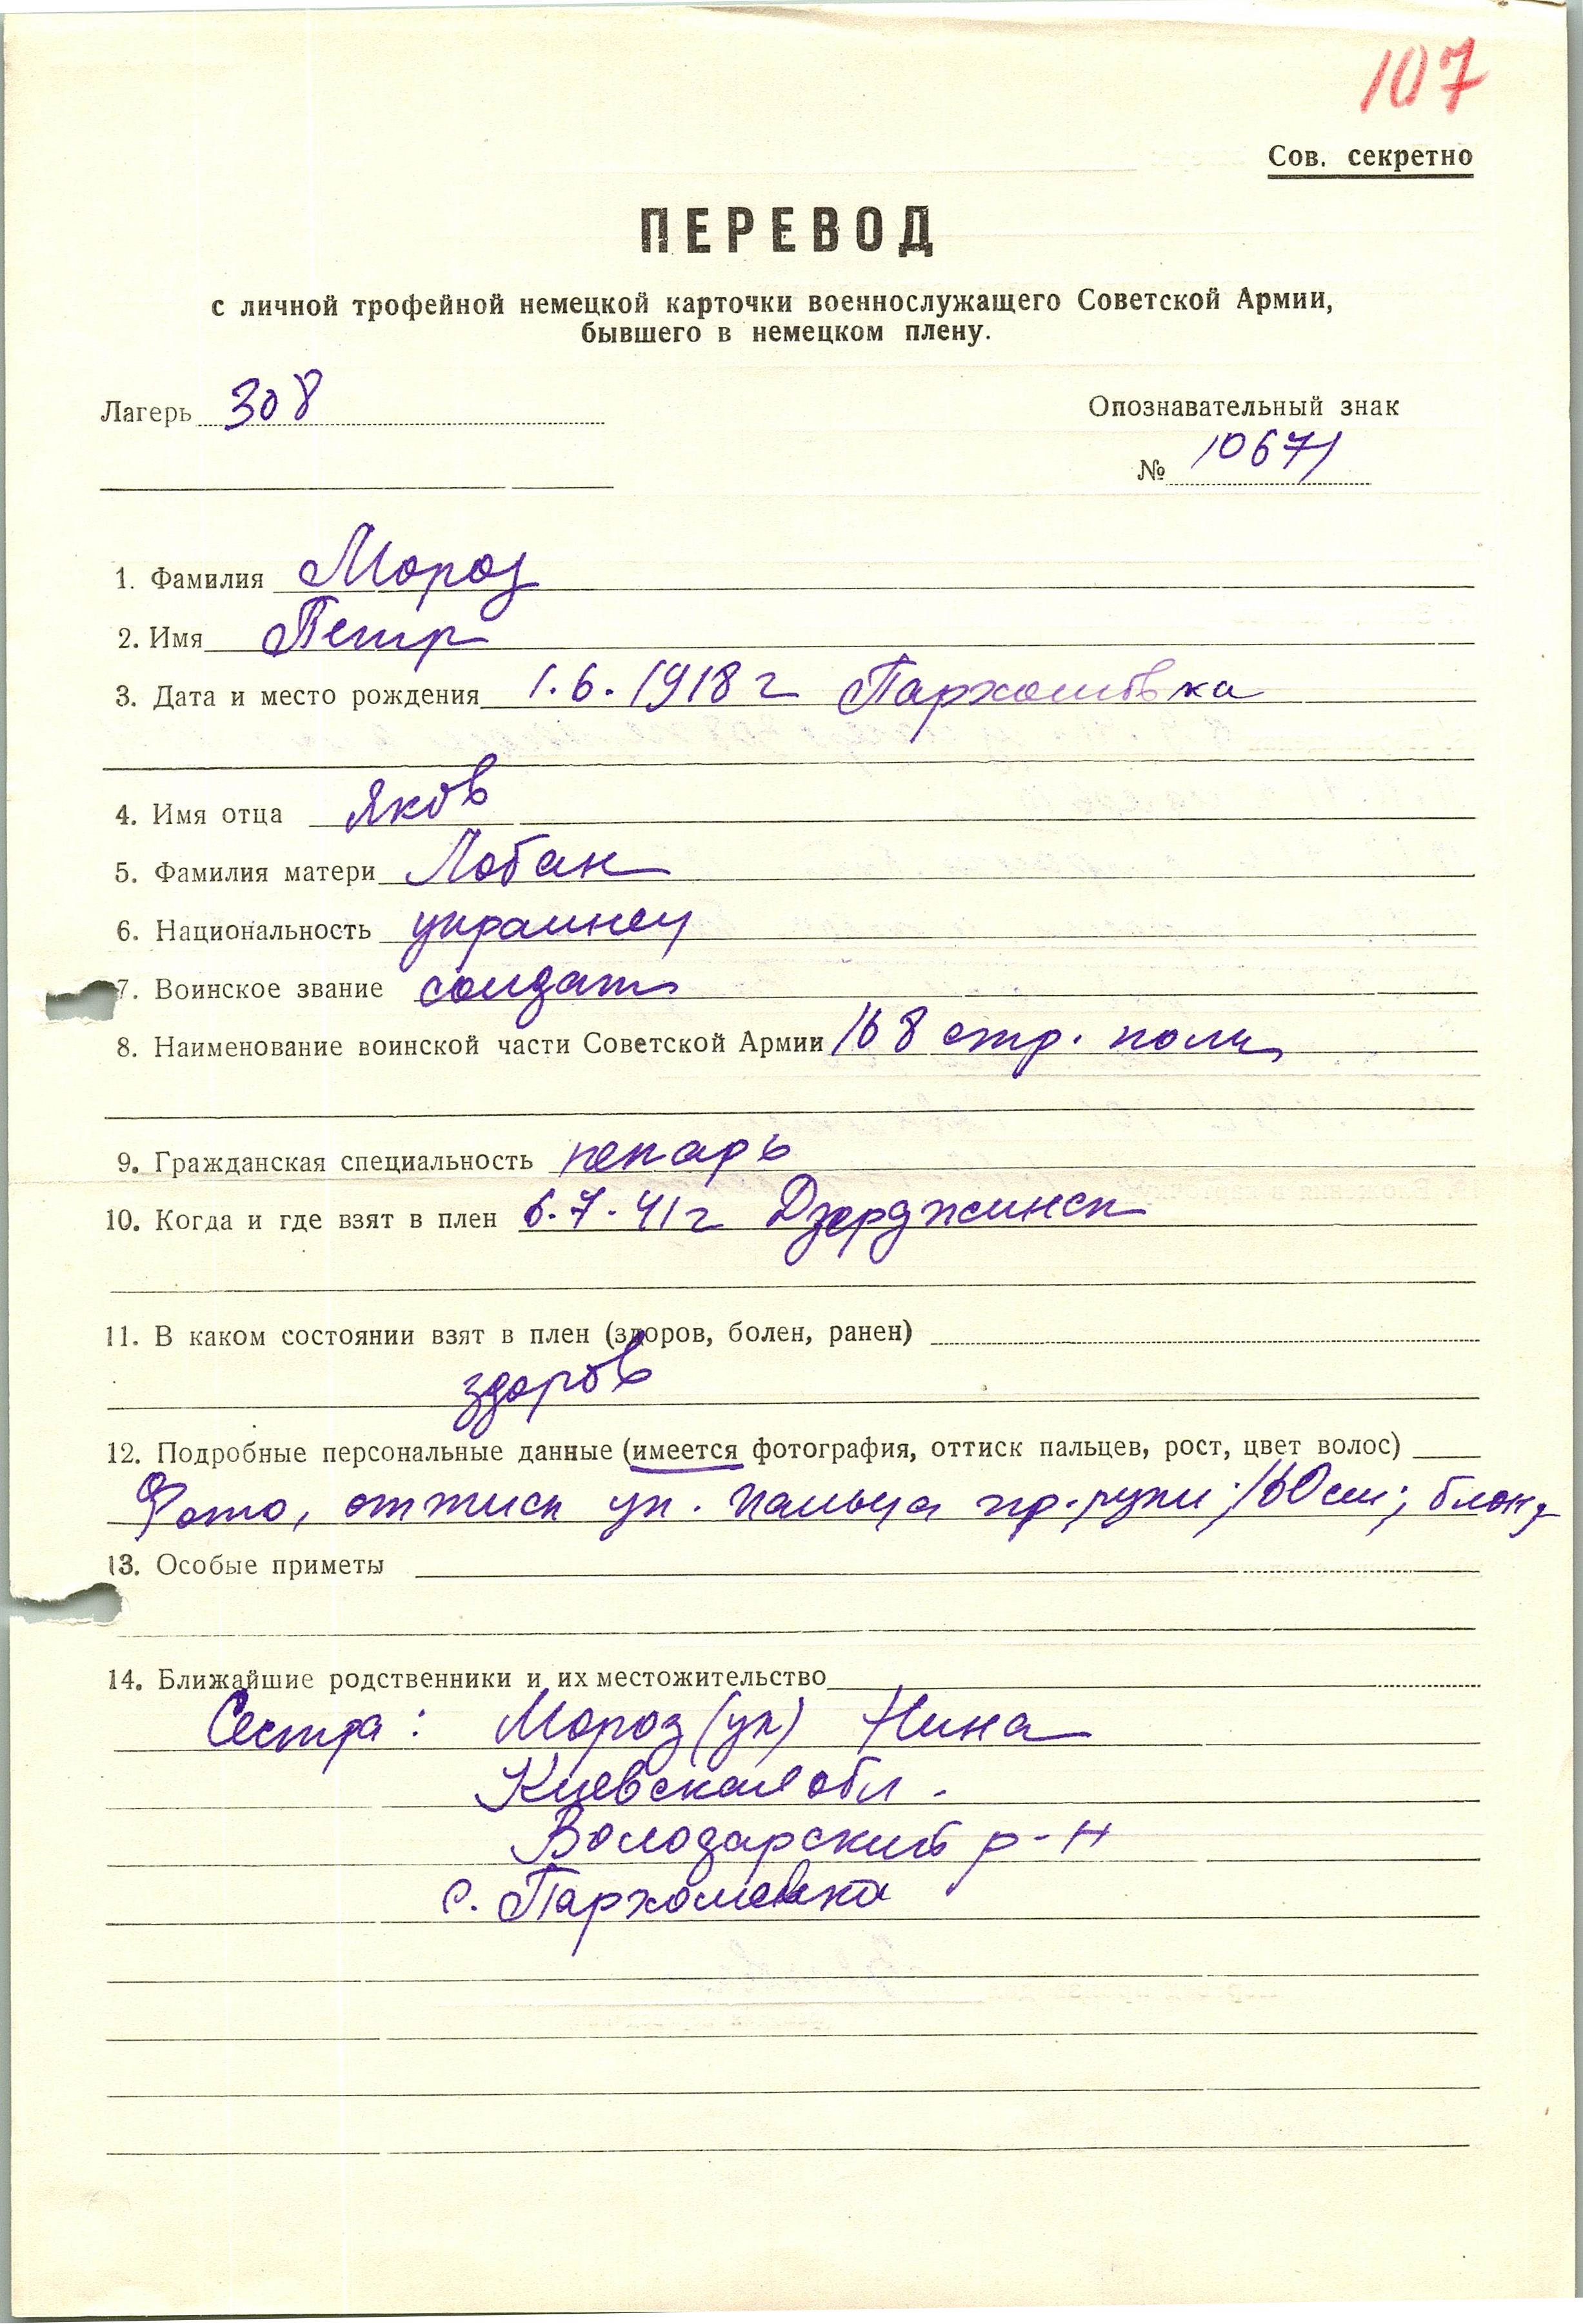 107
Сов. секретно
ПЕРЕВОД
с личной трофейной немецкой карточки военнослужащего Советской Армии,
бывшего в немецком плену.
Лагерь 308
Опознавательный знак
№ 10671
1. Фамилия Мороз
2. Имя Петр
3. Дата и место рождения 1.6.1918 г Пархомовка
4. Имя отца Яков
5. Фамилия матери Лобан
6. Национальность украинец
7. Воинское звание солдат
8. Наименование воинской части Советской Армии 168 стр. полк
9. Гражданская специальность пекарь
10. Когда и где взят в плен 6.7.41 г Дзерджинск
11. В каком состоянии взят в плен (здоров, болен, ранен)
здоров
12. Подробные персональные данные (имеется фотография, оттиск пальцев, рост, цвет волос)
Фото, оттиск ук. пальца пр. руки; 160 см; блонд
13. Особые приметы
14. Ближайшие родственники и их местожительство
Сестра: Мороз (ук) Нина
Киевская обл.
Володарский р-н
с. Пархомовка